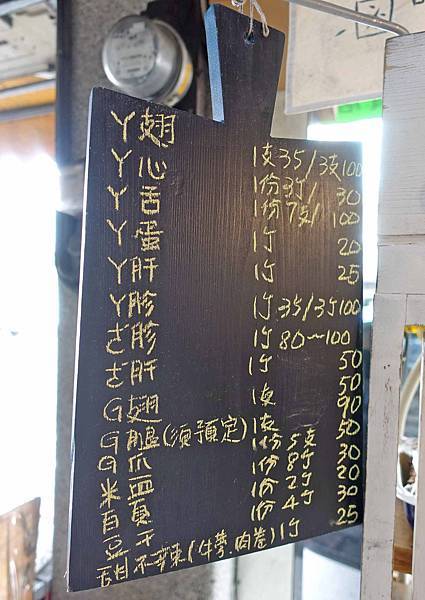 ㄚ翅 1支35/3支100
ㄚ心 1份3竹/30
ㄚ舌 1份7支/100
ㄚ蛋 1竹 20
ㄚ肝 1竹 25
ㄚ胗 1竹35/3竹100
ㄜ胗 1竹80~100
ㄜ肝 1竹 50
G翅 1支 50
G腿(須預定) 1支 90
G爪 1份5支 50
米血 1份8竹 30
百頁 1份2竹 20
豆干 1份4竹 30
甜不辣(牛蒡.肉卷) 1竹 25